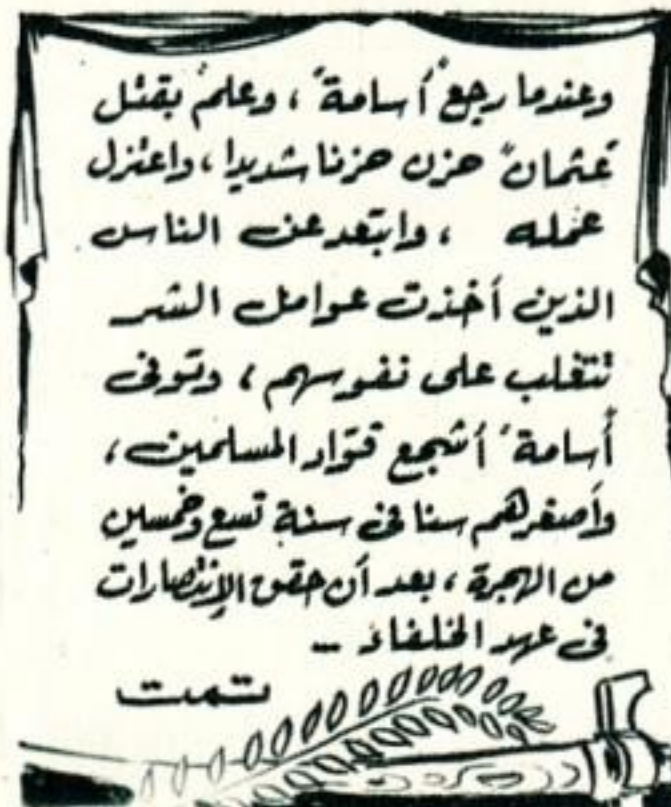 وعندما رجع "أسامة"، وعلم بقتل
"عثمان" حزن حزنا شديدا، واعتزل
عمله ، وابتعد عن الناس
الذين أخذت عوامل الشر
تتغلب على نفوسهم، وتوفى
"أسامة" أشجع قواد المسلمين،
وأصغرهم سنا فى سنة تسع وخمسين
من الهجرة، بعد أن حقق الإنتصارات
فى عهد الخلفاء ..
تمت